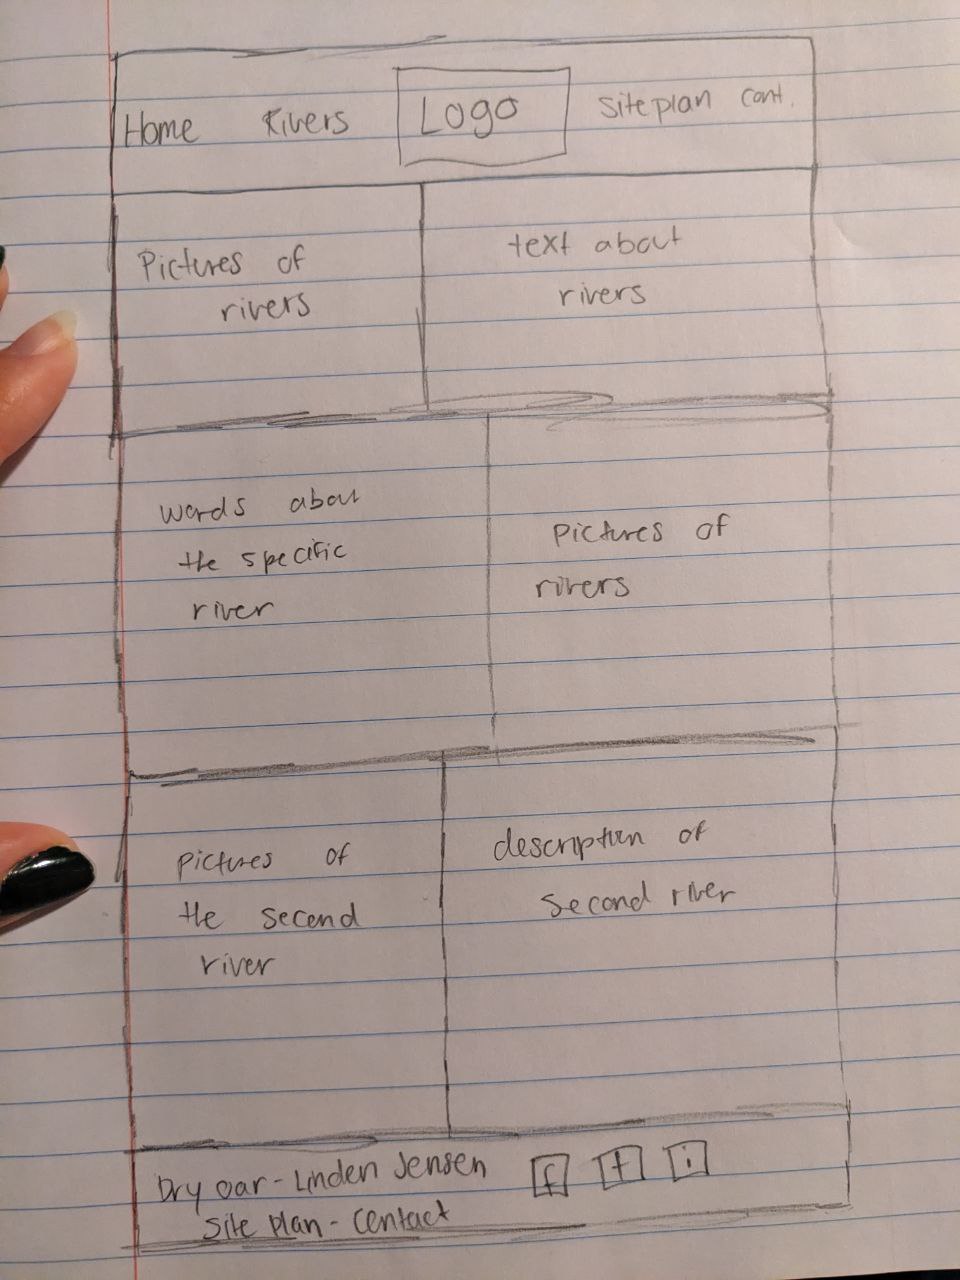 Home Rivers Logo Site plan cont.
Pictures of
rivers
text about
rivers
words about
the specific
river
Pictures of
rivers
Pictures of
the second
river
description of
second river
Dry oar - Linden Jensen f t i
Site plan - Contact